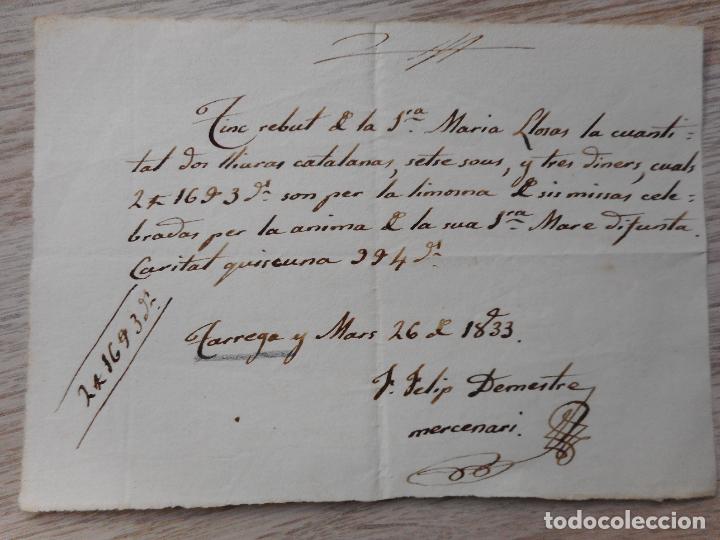 Tinc rebut de la Sra. Maria Llosas la cuanti-
tat dos lliuras catalanas, setse sous, y tres diners, cuals
2 16 3 ds. son per la limosna de sis missas cele-
bradas per la anima de la sua Sra. Mare difunta.
Caritat quiscuna 9 4 ds.
2 16 3 ds.
Tarrega y Mars 26 de 1833.
F. Felip Demestre
mercenari.
todocoleccion